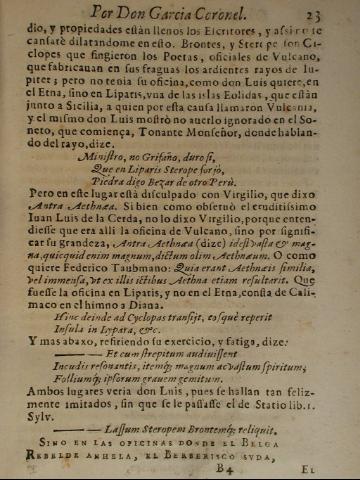 Por Don Garcia Coronel. 23
dio, y propiedades estàn llenos los Escritores, y assi no te
cansarè dilatandome en esto. Brontes, y Sterope son Ci-
clopes que fingieron los Poetas, oficiales de Vulcano,
que fabricauan en sus fraguas los ardientes rayos de Iu-
piter; pero no tenia su oficina, como don Luis quiere, en
el Etna, sino en Liparis, vna de las islas Eolidas, que estàn
junto a Sicilia, a quien por esta causa llamaron Vulcania,
y el mismo don Luis mostrò no auerlo ignorado en el So-
neto, que comiença, Tonante Monseñor, donde hablan-
do del rayo, dize.
Ministro, no Grifaño, duro si,
Que en Liparis Sterope forjò,
Piedra digo Bezar de otro Perù.
Pero en este lugar està disculpado con Virgilio, que dixo
Antra Aethnæa. Si bien como obseruò el eruditissimo
Iuan Luis de la Cerda, no lo dixo Virgilio, porque enten-
diesse que era alli la oficina de Vulcano, sino por signifi-
car su grandeza, Antra Aethnæa (dize) idest vasta & mag-
na, quicquid enim magnum, dictum olim Aethnæum. O como
quiere Federico Taubmano: Quia erant Aethnæis similia,
vel immensa, vt ex illis ictibus Aethna etiam resultarit. Que
fuesse la oficina en Liparis, y no en el Etna, consta de Cali-
maco en el himno a Diana.
Hinc deinde ad Cyclopas transijt, eosquè reperit
Insula in Lypara, &c.
Y mas abaxo, refiriendo su exercicio, y fatiga, dize:
Et cum strepitum audiuissent
Incudis resonantis, itemq; magnum ac vastum spiritum;
Folliumq; ipsorum grauem gemitum.
Ambos lugares veria don Luis, pues se hallan tan feliz-
mente imitados, sin que se le passasse el de Statio lib. 1.
Sylv.
Lassum Steropem Brontemq; reliquit.
SINO EN LAS OFICINAS DONDE EL BELGA
REBELDE ANHELA, EL BERBERISCO SUDA,
B4 EL